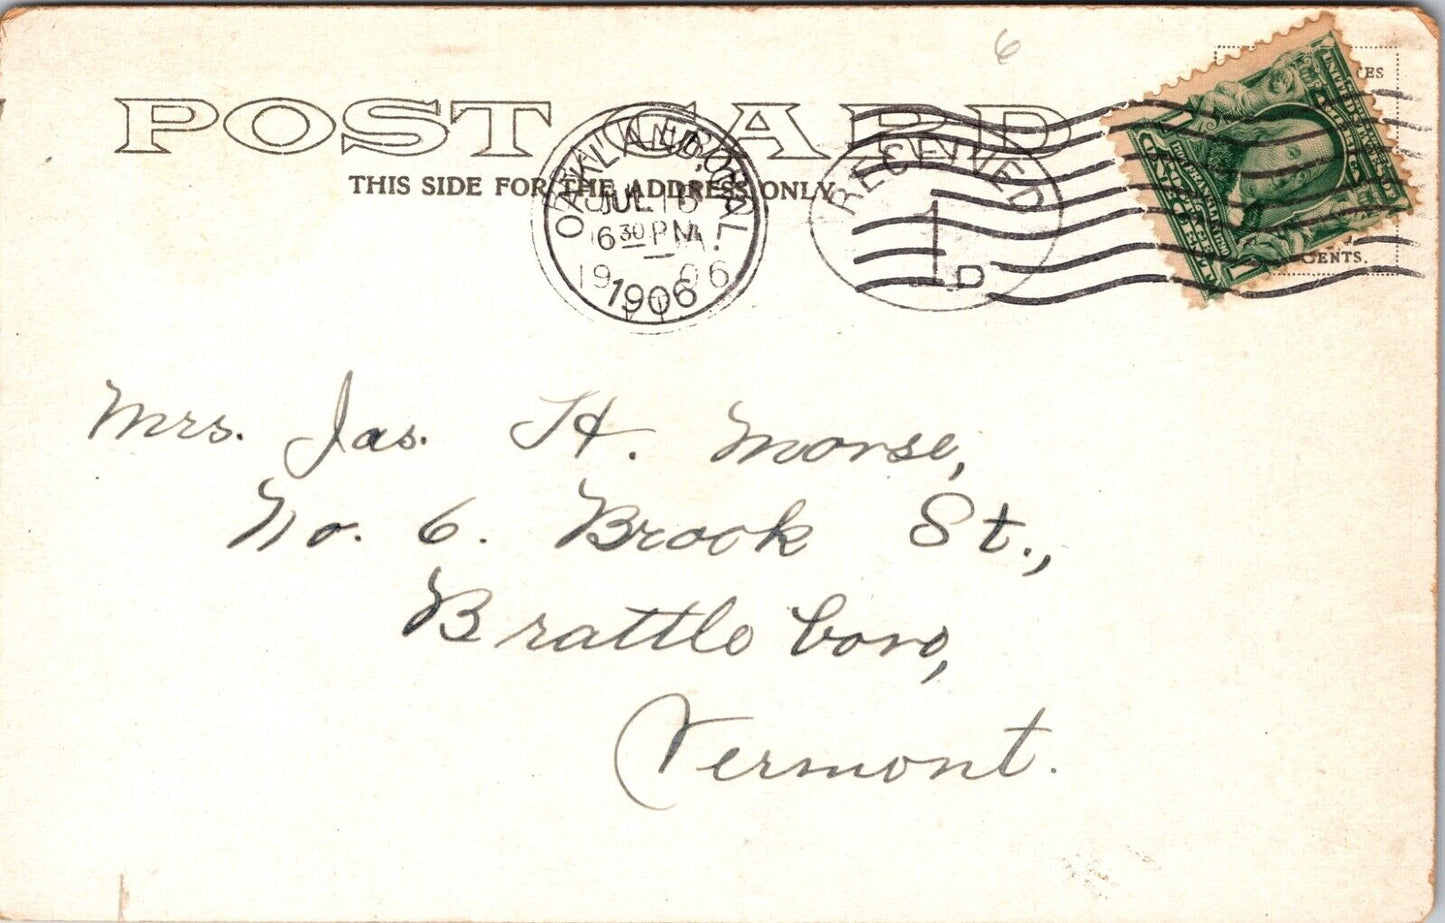 6
POST CARD
THIS SIDE FOR THE ADDRESS ONLY
OAKLAND, CAL.
JUL 16
6 30 PM
1906
RECEIVED
1
D
CENTS.
Mrs. Jas. H. Morse,
No. 6. Brook St.,
Brattleboro,
Vermont.